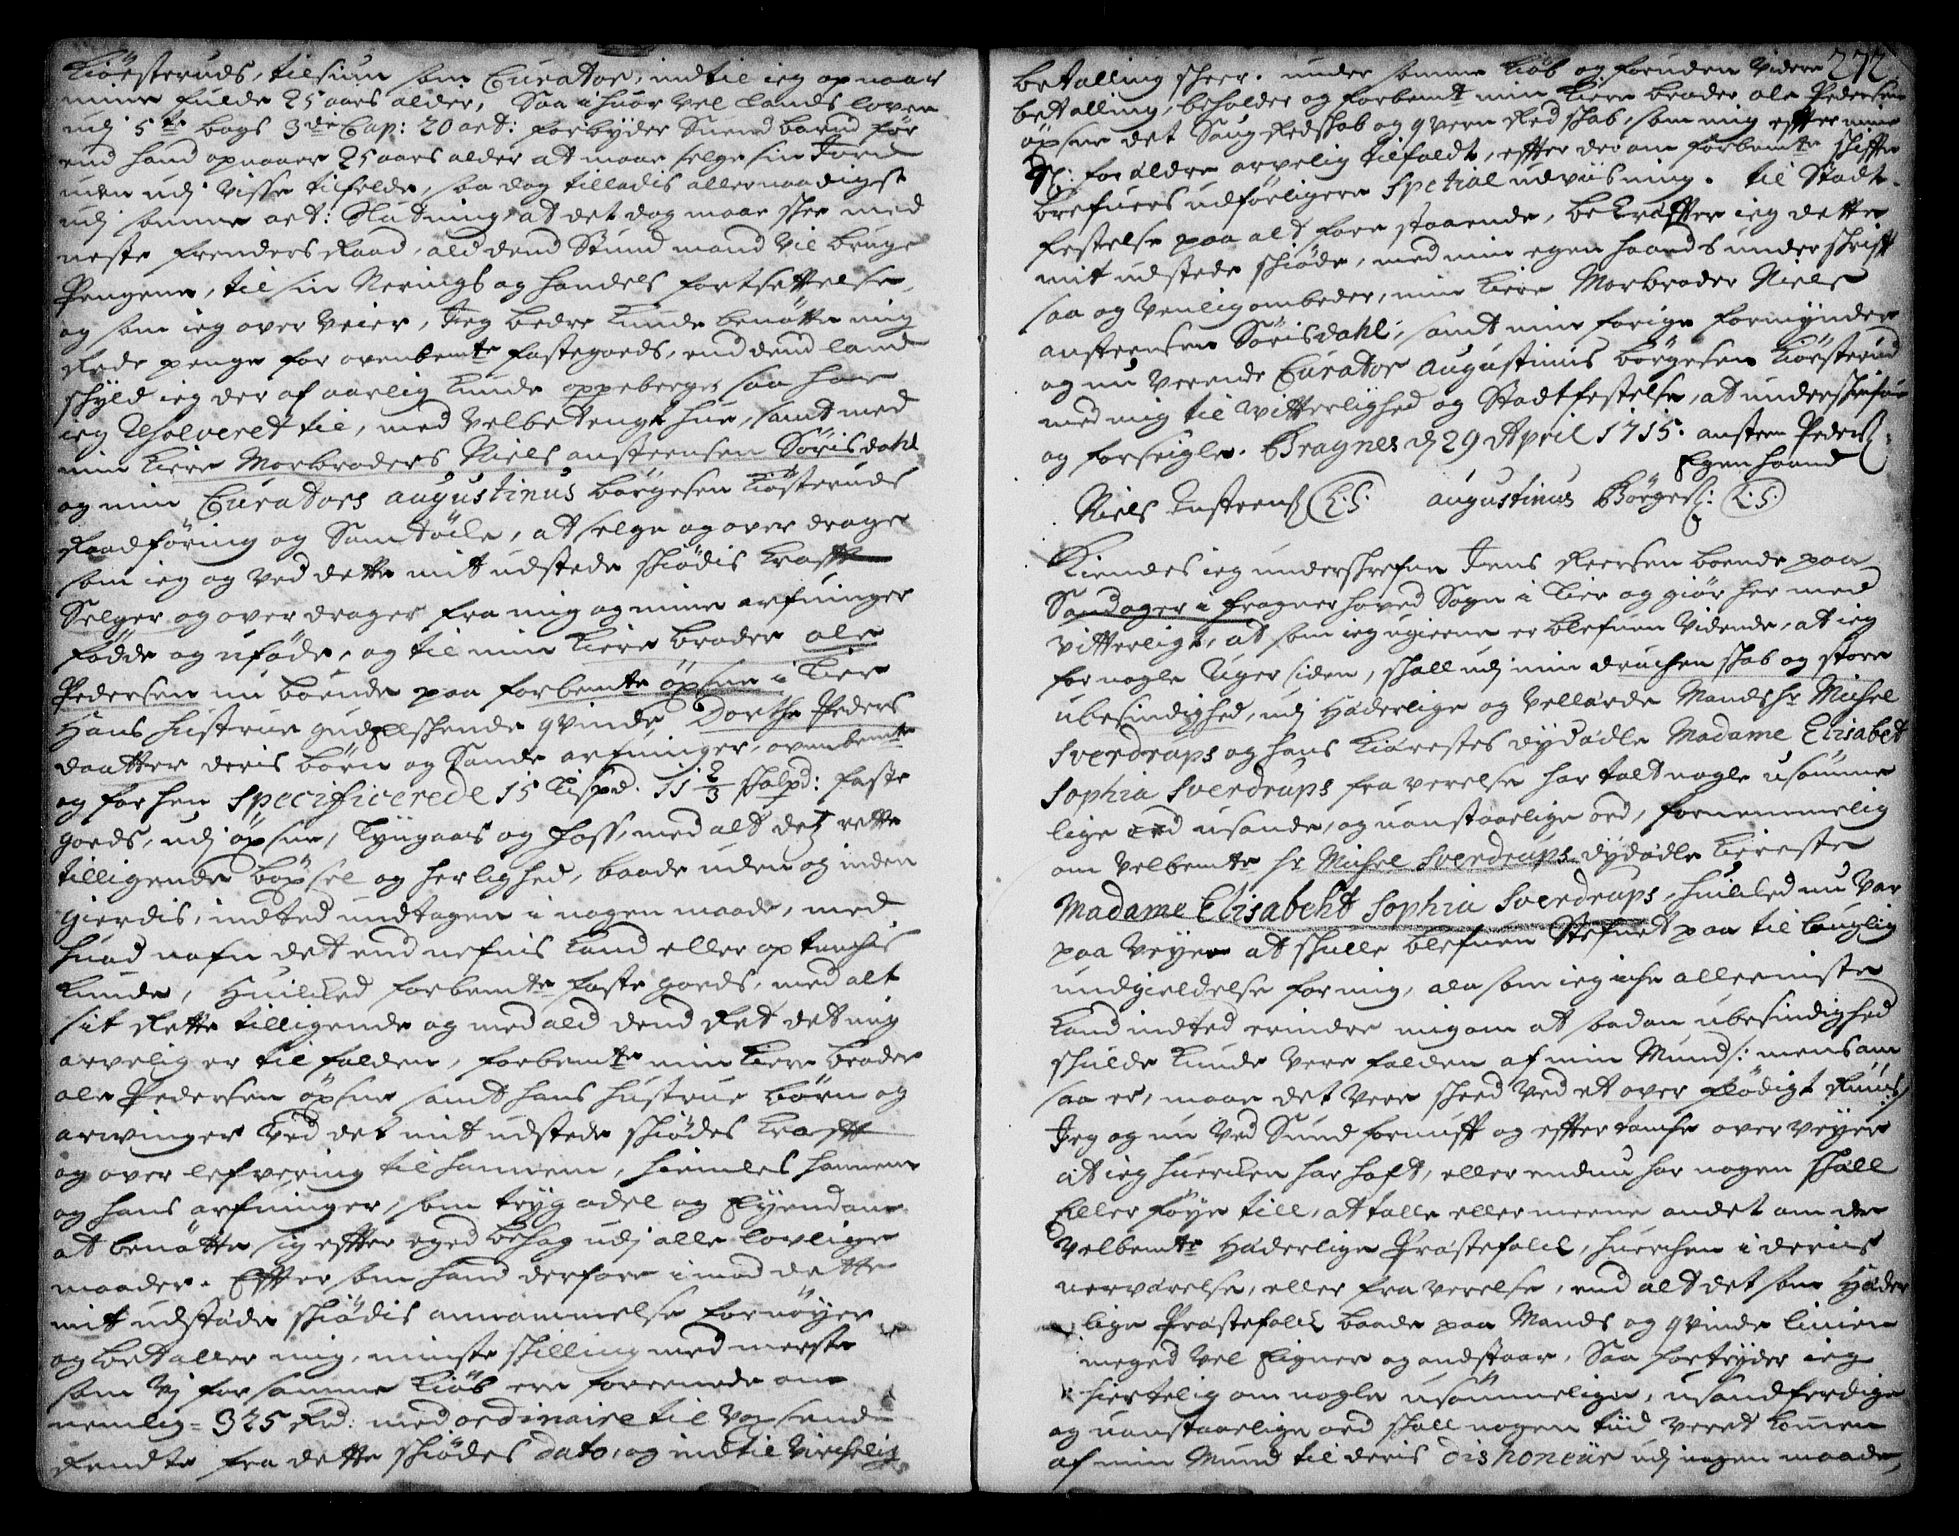 Kiøsteruds, tilsiun som Curator, indtil ieg opnaar
mine fulde 25 aars alder, Saa i huor vel lands loven
udj 5te bogs 3die Cap: 20 art: forbyder Suend barnd før
end hand opnaaer 25 aars alder at maae selge sin Jord
uden udj visse tilfelde, saa dog tilladis allernaadigst
udj samme art: Slutning, at det dog maae skee med
neste frenders Raad, ald dend Stund mand vil bruge
Pengene, til sin Nerings og handels fortsettelse,
og som ieg over veier, Jeg bedre kunde benøtte mig
Rede penge for ovenbemte faste goeds, end dend land
skyld ieg der af aarlig kunde oppeberge, saa haer
ieg Resolveret til, med velbetengt hue, samt med
min kiere Morbroders Niels ansteensen Sørisdahl
og min Curators augustinus børgesen Kiøsteruds
Raadføring og Samtøcke, at selge og over drage
som ieg og ved dette mit udstede skiødis krafft
Selger og over drager fra mig og mine arfuinger
fødde og uføde, og til min kiere broder ole
Pedersen nu boende paa forbemte øpsne i Lier
Hans hustrue gudelskende qvinde, Dorthe Peders
daatter deris børn og Sande arfuinger, ovenbemte
og for hen Specificerede 15 Lispd. 11 2/3 skolpd: faste
goeds, udj øpsne, Lyngaas og foss, med alt det rette
tilligende bøxsel og herlighed, baade uden og inden
gierdis, indted undtagen i nogen maade, med
huad nafn det end nefnis kand eller optenchis
kunde, Huilcked forbemte faste goeds, med alt
sit Rette tilligende og med ald dend Ret det mig
arvelig er til falden, forbemte min kiere broder
ole Pedersen øpsne samt hans hustrue børn og
arwinger ved det mit udstede skiødes krafft
og over lefvering til hannem, hiemles hannem
og hans arfuinger, som tryg odel og Eyendom
at benøtte sig effter eged behag udj alle lovlige
maader. Effter som hand derfore imod dette
mit udstøde skiødis annammelse fornøyer
og betaller mig, minste skilling med merste
som vj for samme kiøb ere foreenede om
nemlig = 325 Rd: med ordinaire til voxsende
Rendte fra dette skiødes dato, og indtil virchelig
272
betalling skeer. under samme kiøb og foruden videre
betalling, beholder og forbemt min kiere broder ole Pedersen
øpsne det Saug Redskab og qvern Redskab, som mig effter mine
Sl: forældre arvelig tilfaldt, effter der om forbemte skiffte
brefuers udførligere Spetial udviisning. til Stadt-
festelse paa alt fore staaende, bekreffter ieg dette
mit udstede skiøde, med min egen haands underskrifft
saa og venlig ombeder, min kiere Morbroder Niels
ansteensen Sørisdahl, samt min forige formynder
og nu verende Curator augustinus børgesen Kiøsterud
med mig til vitterlighed og Stadtfestelse, at underskrifue
og forseigle. Bragnes d 29 April 1715. ansten Peders:
Egen haand
Niels Ansteens (L:S:) augustinus Børges: (L:S:)
Kiendes ieg underskrefne Jens Reersen boende paa
Sandager i fragner hoved Sogn i Lier og giør her med
vitterligt, at som ieg ugierne er blefuen vidende, at ieg
for nogle Uger siden, skall udj min druchenskab og store
ubesindighed, udj Hæderlige og vellærde Mands hr Michel
Sverdrups og hans Kiærestes dydædle Madame Elisabet
Sophia Sverdrups fra verelse har talt nogle usømme
lige ord usande, og uanstaaelige ord, fornemmelig
om velbemte hr Michel Sverdrups dydædle Kiereste
Madame Elisabeht Sophia Sverdrups, huilcked nu var
paa veyen at skulle blefuen Stefnet paa til lauglig
undgieldelse for mig, alt som ieg iche allermiste
kand indted erindre mig om at sadan ubesindighed
skulde kunde vere falden af min Mund: mens om
saa er, maae det vere skeed ved et over flødigt Ruus,
Jeg og nu ved Sund fornufft og effter tanche over veyer
at ieg huerchen har hafft, eller endnu har nogen skiell
Eller føye till, at talle eller meene andet om de
velbemte Hæderlige Præstefolck, huerchen i deris
nerværelse, eller fra verelse, end alt det som Hæder
lige Præstefolck baade paa Mands og qvinde linien
meged vel Eigner og anstaar, Saa fortryder ieg
hiertelig om nogle usømmelige, usandferdige
og uanstaaelige ord skall nogen tiid veret kommen
af min Mund til deris dishoneur udj nogen maade,